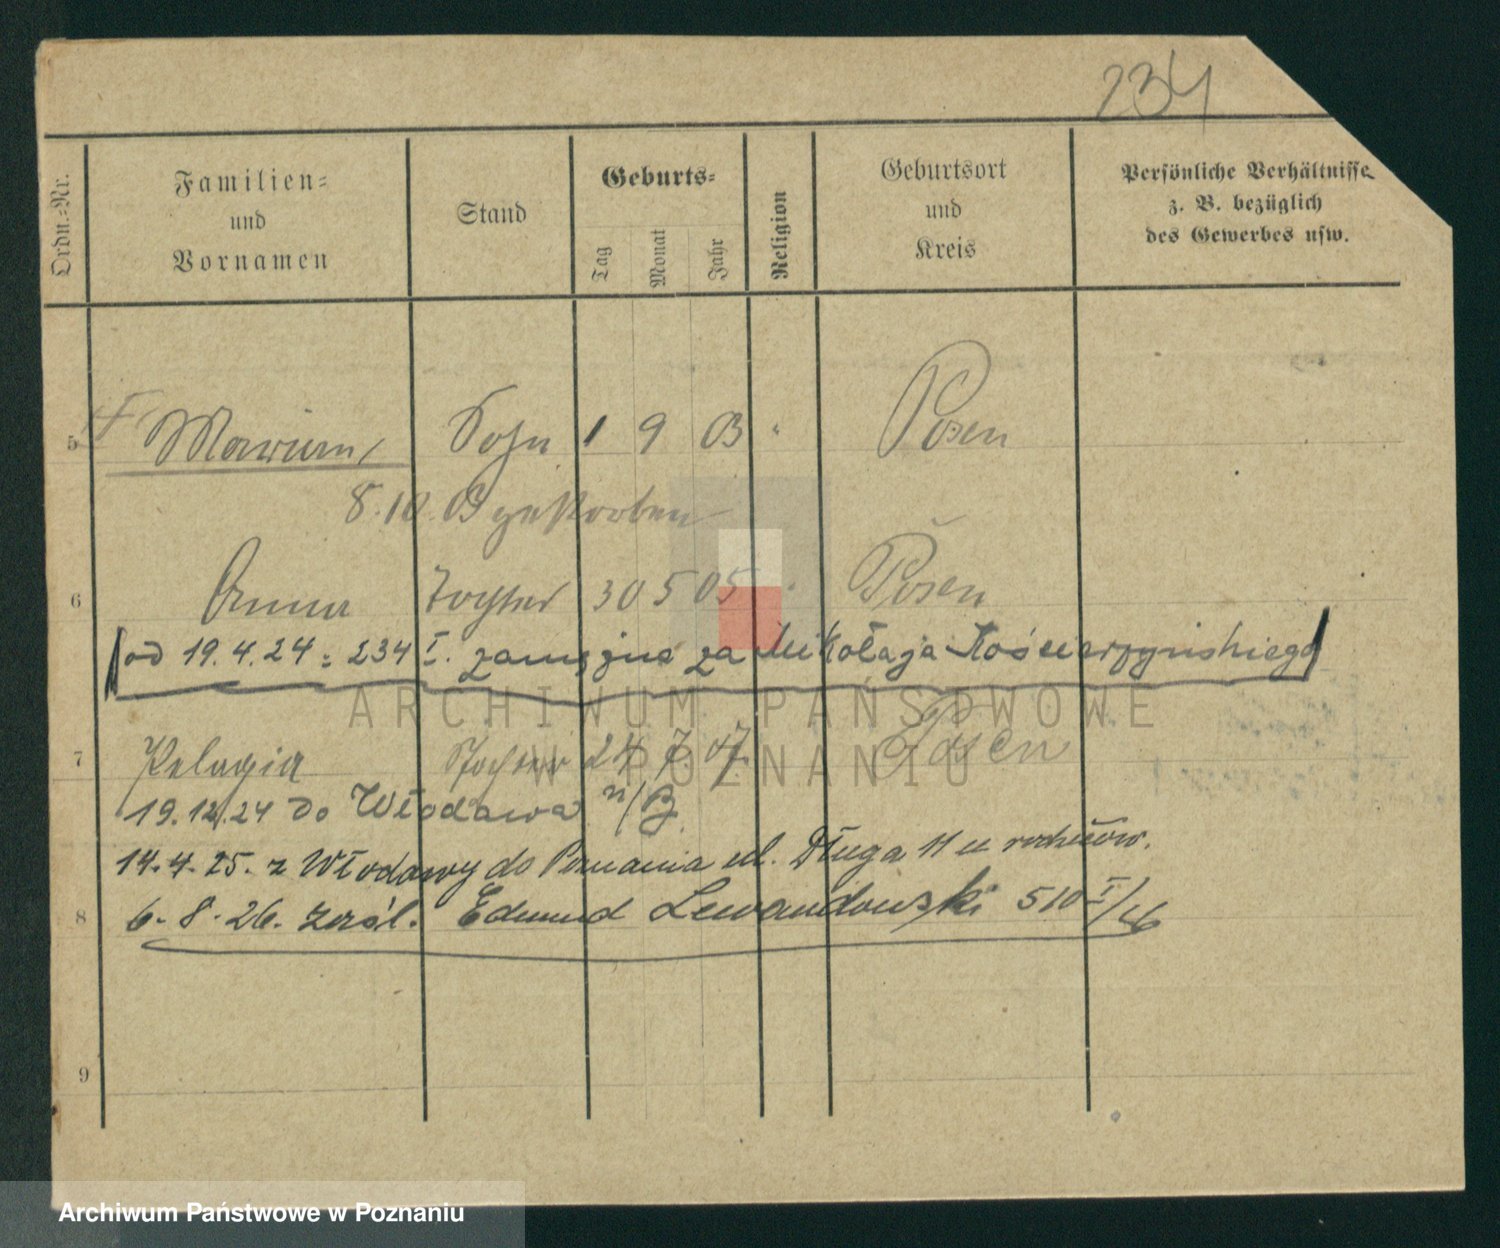 234
Ordn.=Nr.
Familien=
und
Vornamen
Stand
Geburts=
Tag
Monat
Jahr
Religion
Geburtsort
und
Kreis
Persönliche Verhältnisse
z. B. bezüglich
des Gewerbes usw.
5 Marian Sohn 1 9 03 " Posen
8.10.03 gestorben
6 Anna Tochter 30 5 05 " Posen
(od 19.4.24 = 234 I. zamężna za Mikołaja Kościerzyńskiego)
7 Pelagia Tochter 24 7. 07. Posen
19.12.24 do Włodawa n/B.
14.4.25. z Włodawy do Poznania ul. Długa 11 u
8 6.8.26. zaśl. Edmund Lewandowski 510 I/26
9
ARCHIWUM PAŃSTWOWE
W POZNANIU
Archiwum Państwowe w Poznaniu